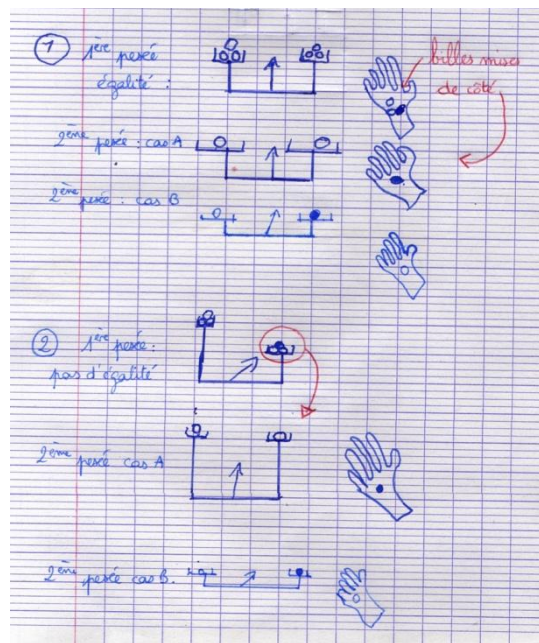 1
1ère pesée
égalité :
billes mises
de côté
2ème pesée : cas A
2ème pesée : cas B
2
1ère pesée :
pas d'égalité
2ème pesée cas A
2ème pesée cas B.